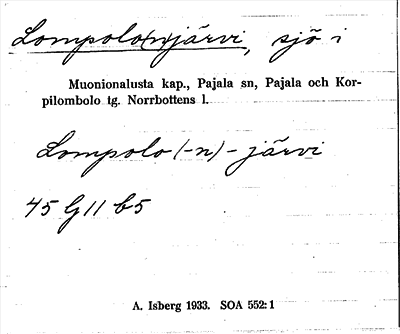 Lompolo(n)järvi, sjö i
Muonionalusta kap., Pajala sn, Pajala och Kor-
pilombolo tg. Norrbottens l.
Lompolo (-n) - järvi
45 G 11 b 5
A. Isberg 1933. SOA 552:1